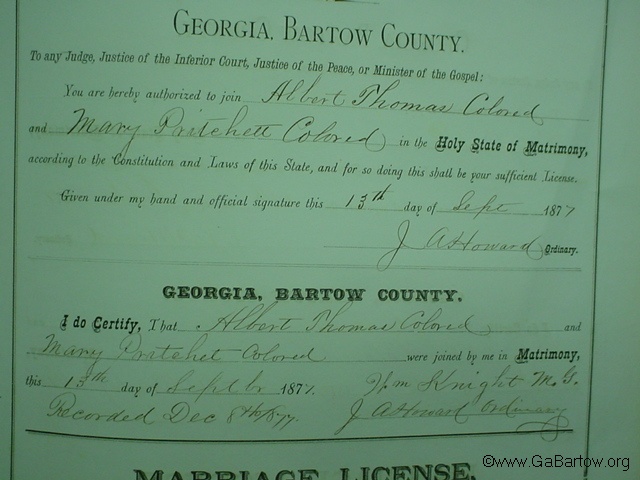 GEORGIA, BARTOW COUNTY.
To any Judge, Justice of the Inferior Court, Justice of the Peace, or Minister of the Gospel:
You are hereby authorized to join Albert Thomas Colored
and Mary Pritchett Colored in the Holy State of Matrimony,
according to the Constitution and Laws of this State, and for so doing this shall be your sufficient License.
Given under my hand and official signature this 13th day of Sept 1877
J A Howard Ordinary.
GEORGIA, BARTOW COUNTY.
I do Certify, That Albert Thomas Colored and
Mary Pratchet Colored were joined by me in Matrimony,
this 13th day of Septbr 1877. Wm Knight M.G.
Recorded Dec 8th 1877. J A Howard Ordinary
MARRIAGE LICENSE.
©www.GaBartow.org